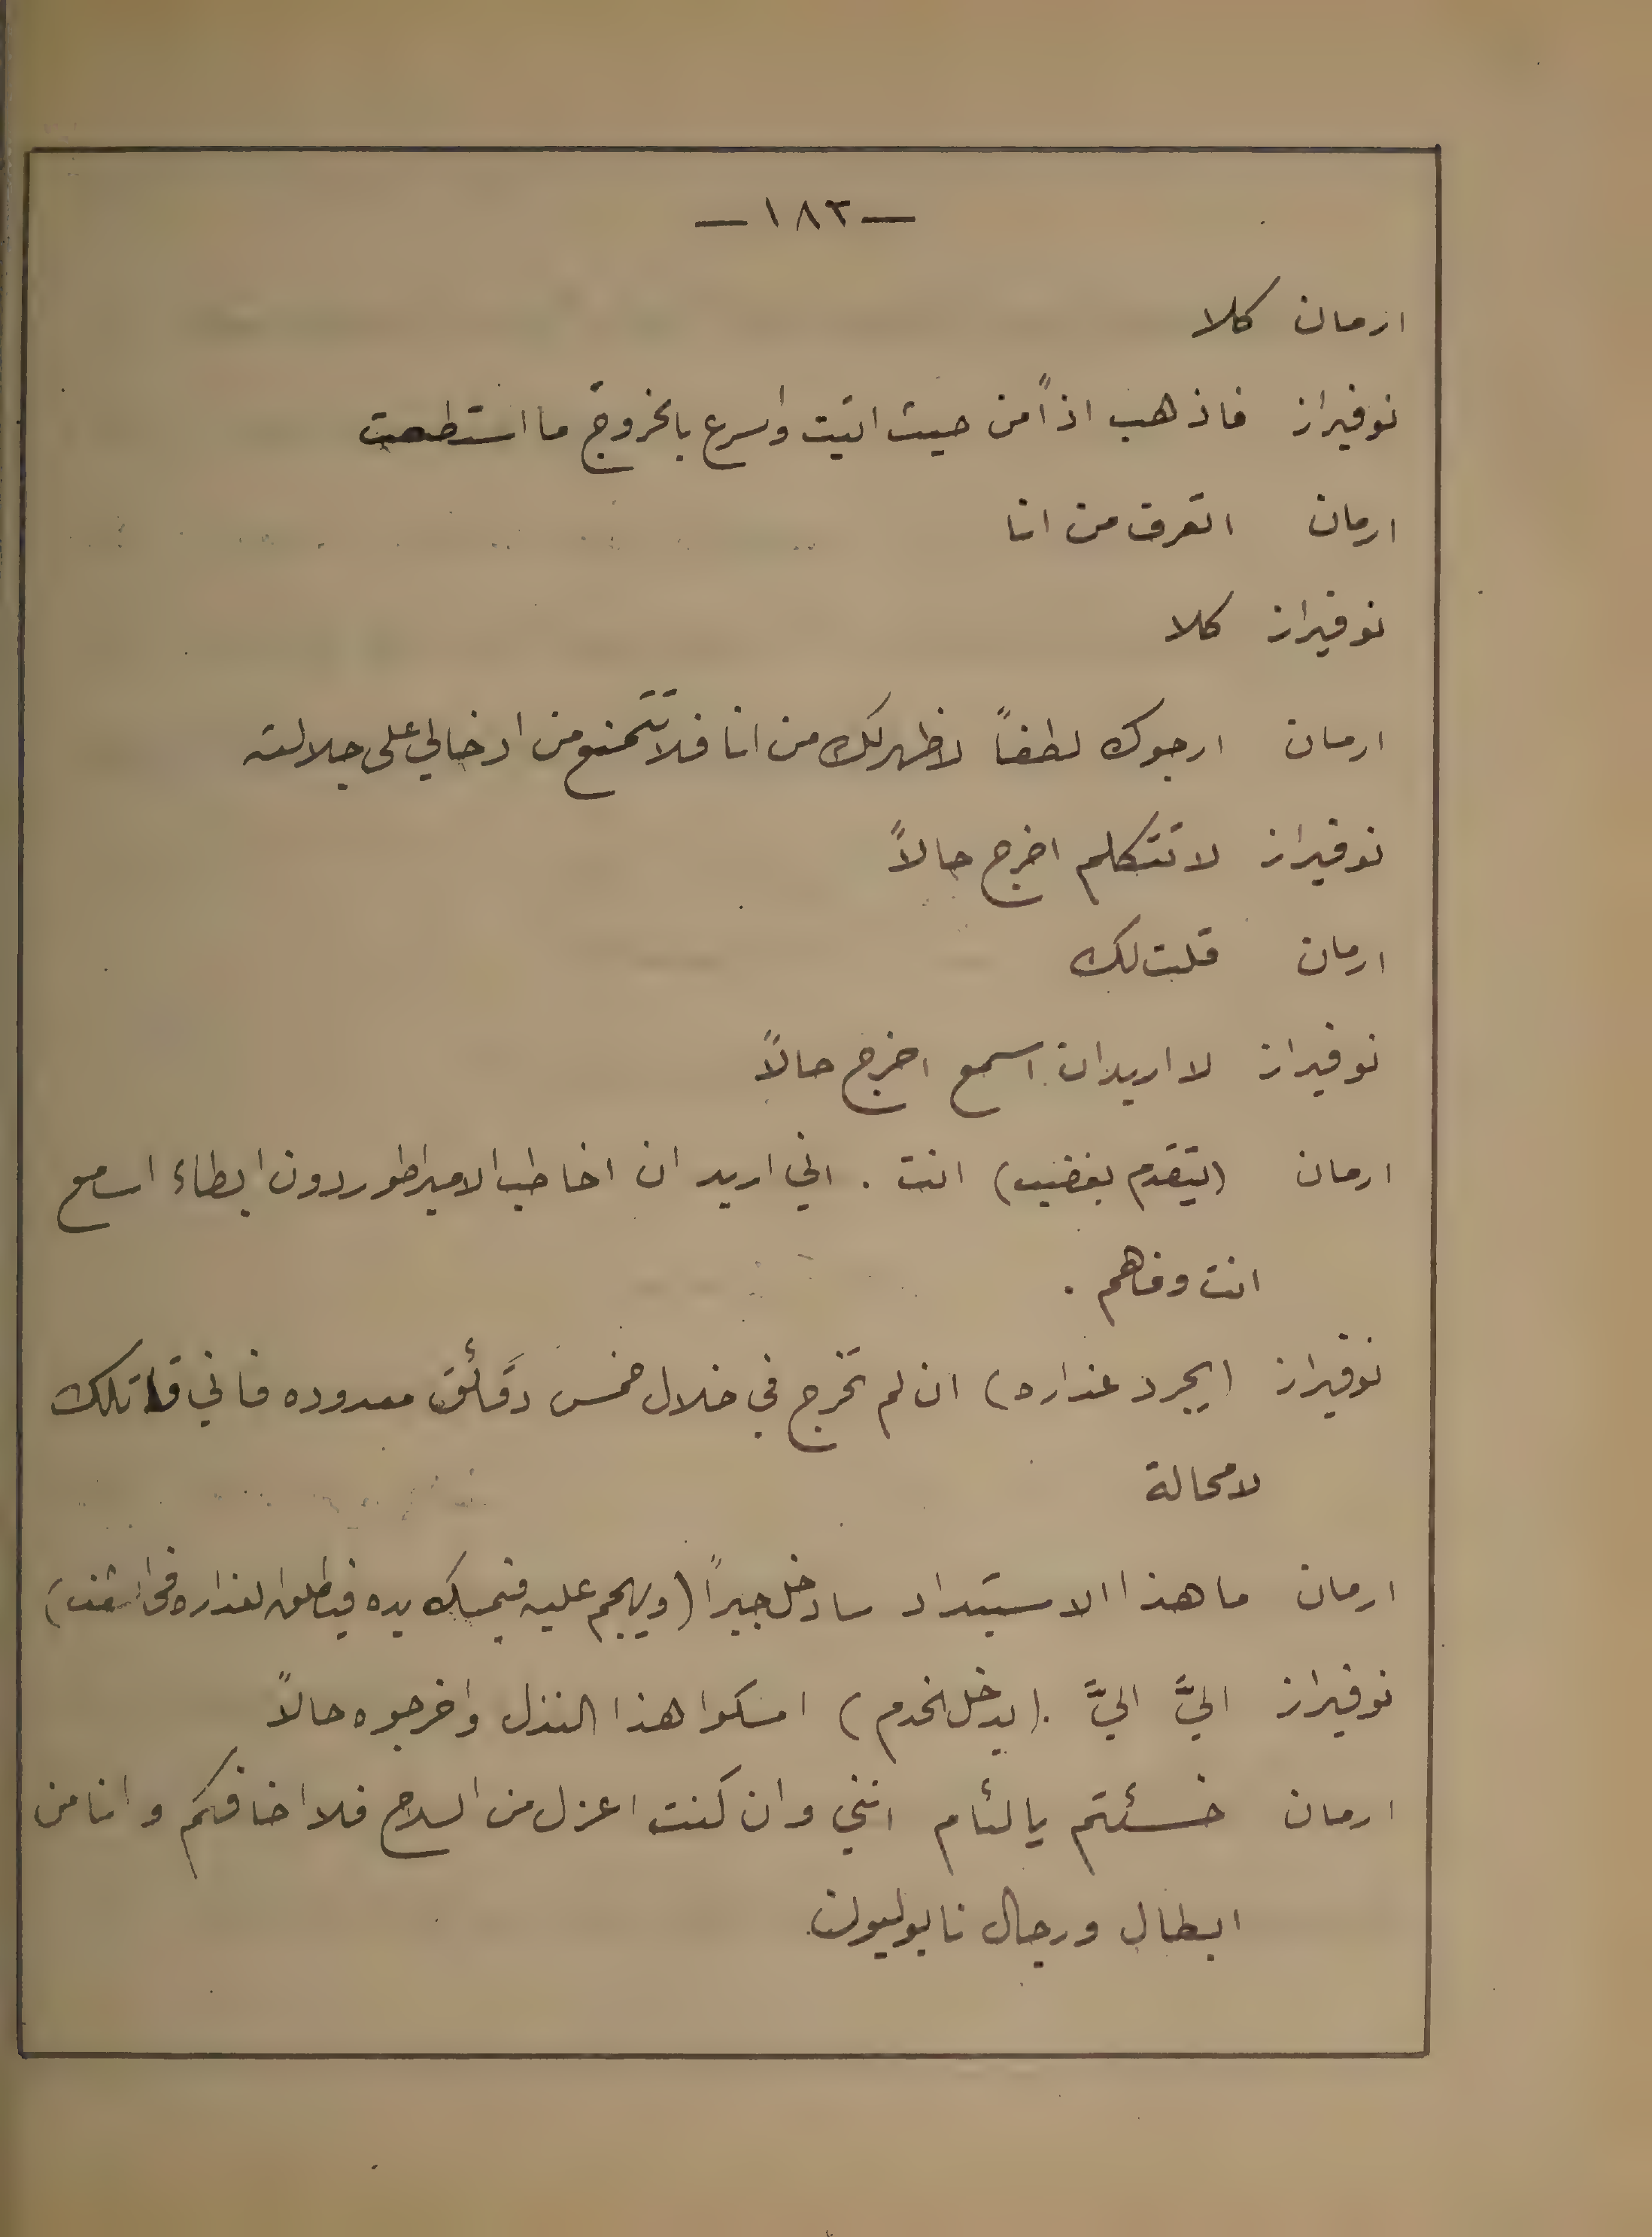 —١٨٢—
ارمان كلا
نوفيراز فاذهب اذاً من حيث اتيت واسرع بالخروج ما استطعت
ارمان اتعرف من انا
نوفيراز كلا
ارمان ارجوك لطفاً لاظهر لك من انا فلا تتمنع من ادخالي على جلالته
نوفيراز لا تتكلم اخرج حالاً
ارمان قلت لك
نوفيراز لا اريد ان اسمع اخرج حالاً
ارمان (يتقدم بغضب) انت . اني اريد ان اخاطب الامبراطور دون ابطاء اسامع
انت وفاهم .
نوفيراز (يجرد غداره) ان لم تخرج في خلال خمس دقائق معدوده فاني قاتلك
لا محالة
ارمان ما هذا الاستبداد سادخل جبراً (ويهجم عليه فيمسك يده فيطلق الغداره في السقف)
نوفيراز اليَّ اليَّ . (يدخل الخدم) امسكوا هذا النذل واخرجوه حالاً
ارمان خسئتم يا لئام انني وان كنت اعزل من السلاح فلا اخافكم وانا من
ابطال ورجال نابوليون